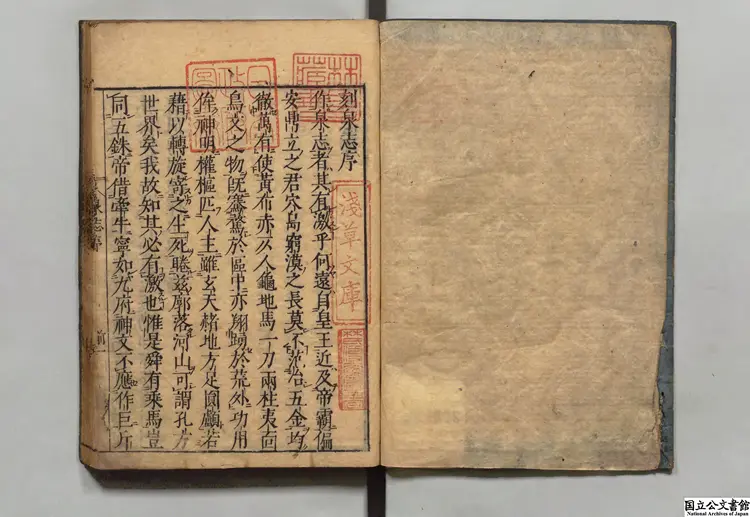 刻泉志序
作泉志者其有激乎何遠自皇王近及帝霸偏
安鼎立之君穴島窮漠之長莫不範冶五金均
徹萬有使黃布赤仄人龜地馬一刀兩柱夷面
鳥文之物既騫騖於區中亦翔踴於荒外功用
侔神明權樞匹人主雖玄天赭地方足圓顱若
藉以轉旋寄之生死聽茲廓落河山可謂孔方
世界矣我故知其必有激也惟是舜有乘馬豈
同五銖帝借牽牛寧如九府神文不應作巨斤
淺草文庫
林氏藏書
國立公文書館
National Archives of Japan